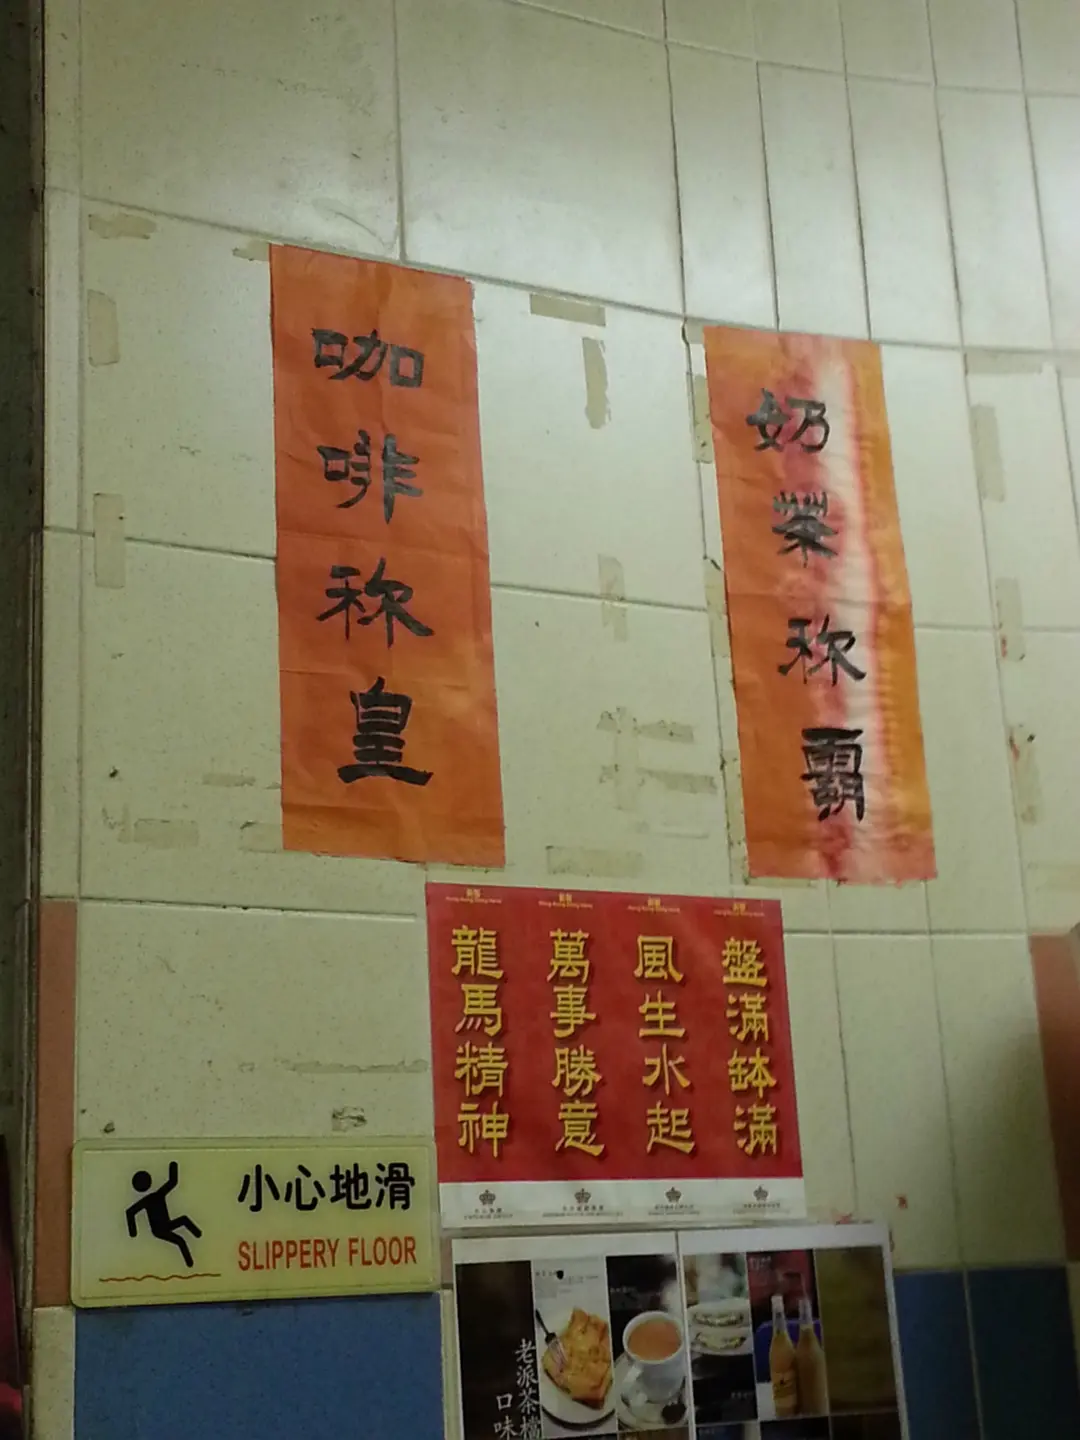 咖啡称皇
奶茶称霸
龍馬精神
萬事勝意
風生水起
盤滿缽滿
小心地滑
SLIPPERY FLOOR
老派茶檔
口味